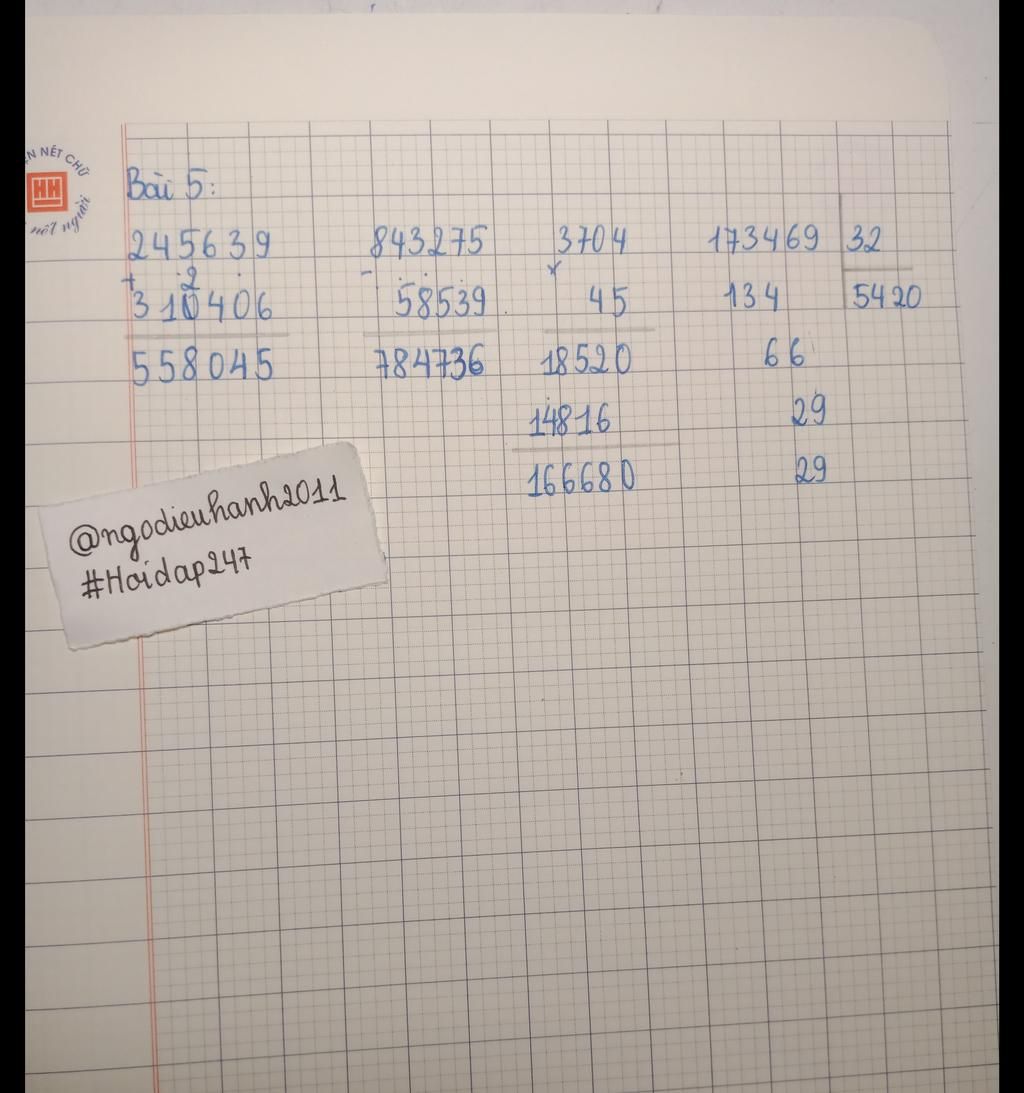 N NÉT CHỮ
HH
nết người
Bài 5:
245639 843275 3704 173469 32
+ 2 - x
310406 58539 45 134 5420
558045 784736 18520 66
14816 29
166680 29
@ngodieuhanh2011
#Hoidap247